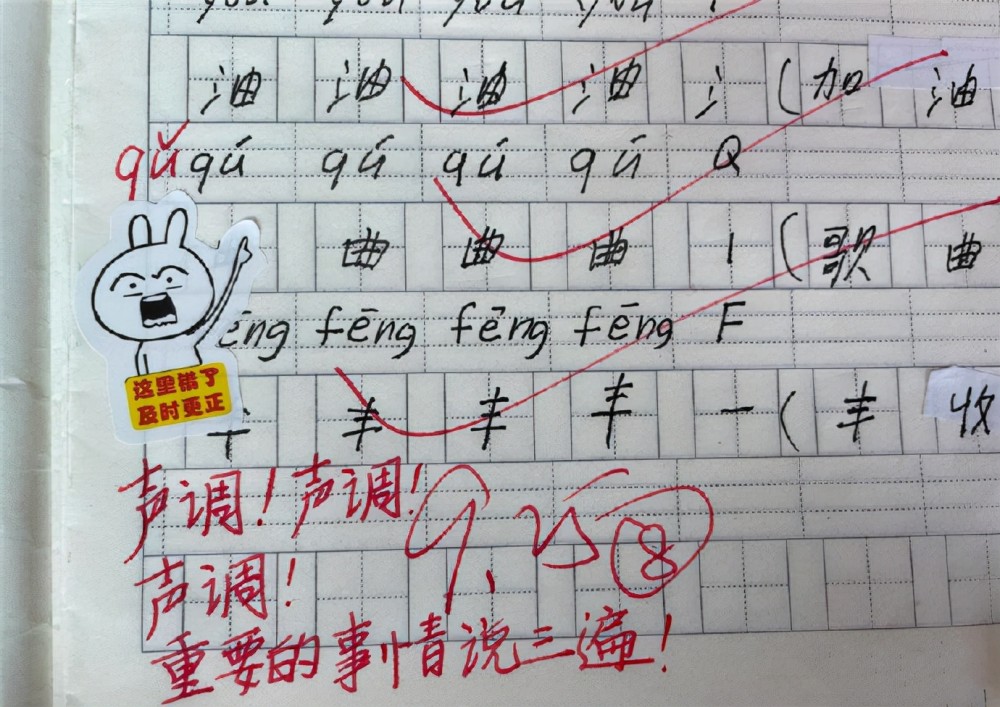 油 油 油 油 氵 (加 油
qǔ qú qú qú qú Q
曲 曲 曲 丨 (歌 曲
ēng fēng fēng fēng F
丰 丰 丰 一 (丰 收
这里错了
及时更正
声调！声调！
声调！
9.25 8
重要的事情说三遍！